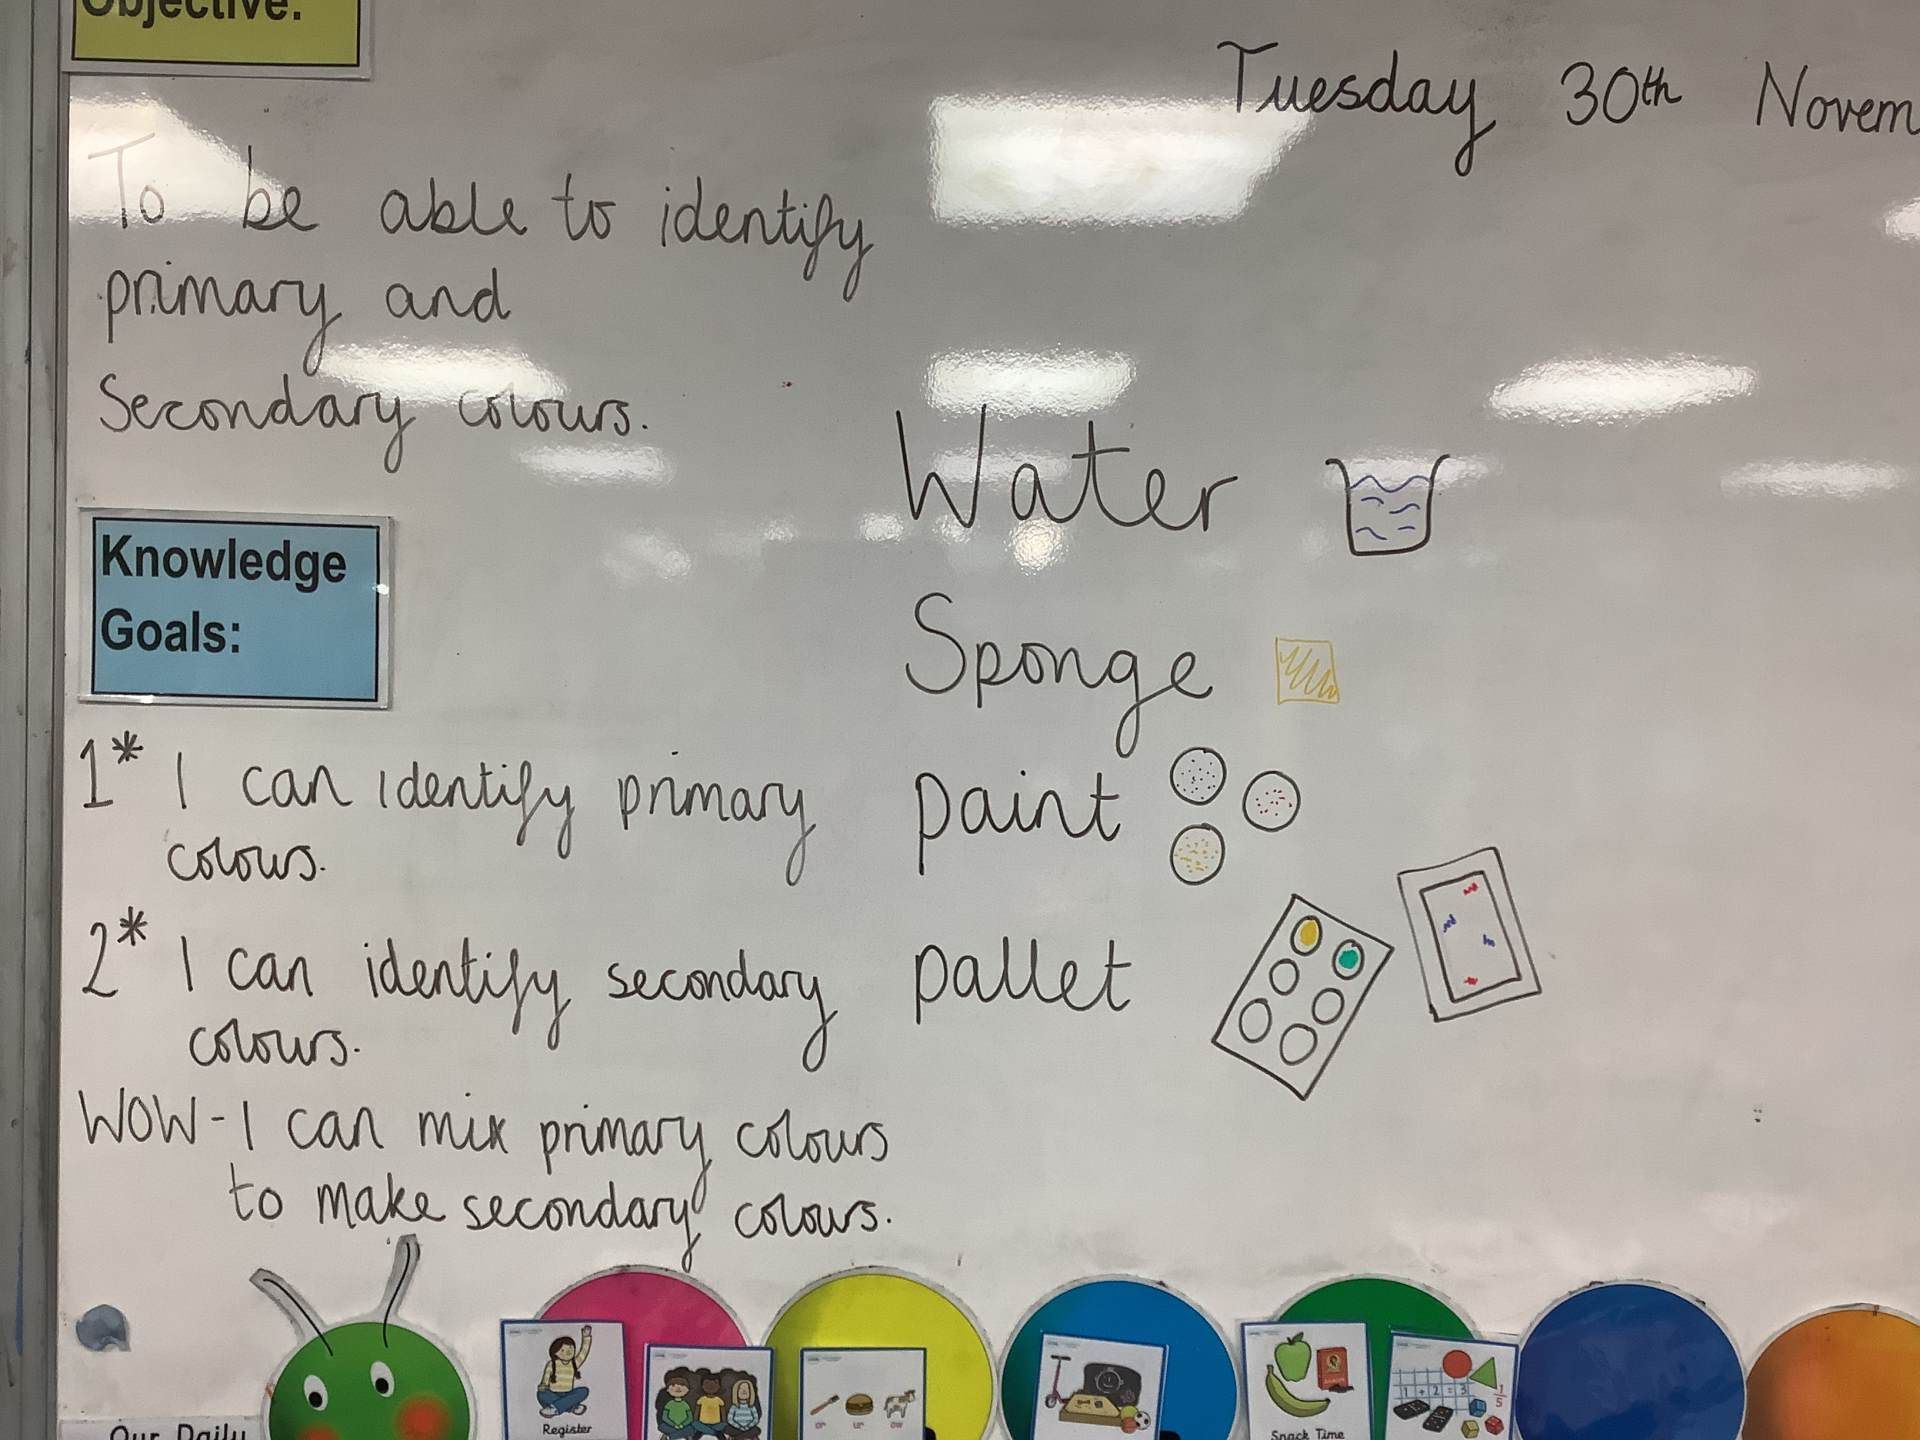 Objective:
Tuesday 30th Novem
To be able to identify
primary and
Secondary colours.
Knowledge
Goals:
1* I can identify primary
colours.
2* I can identify secondary
colours.
WOW - I can mix primary colours
to make secondary colours.
Water
Sponge
paint
pallet
Our Daily
Register
or ur ow
1 + 2 = 3
1/5
Snack Time